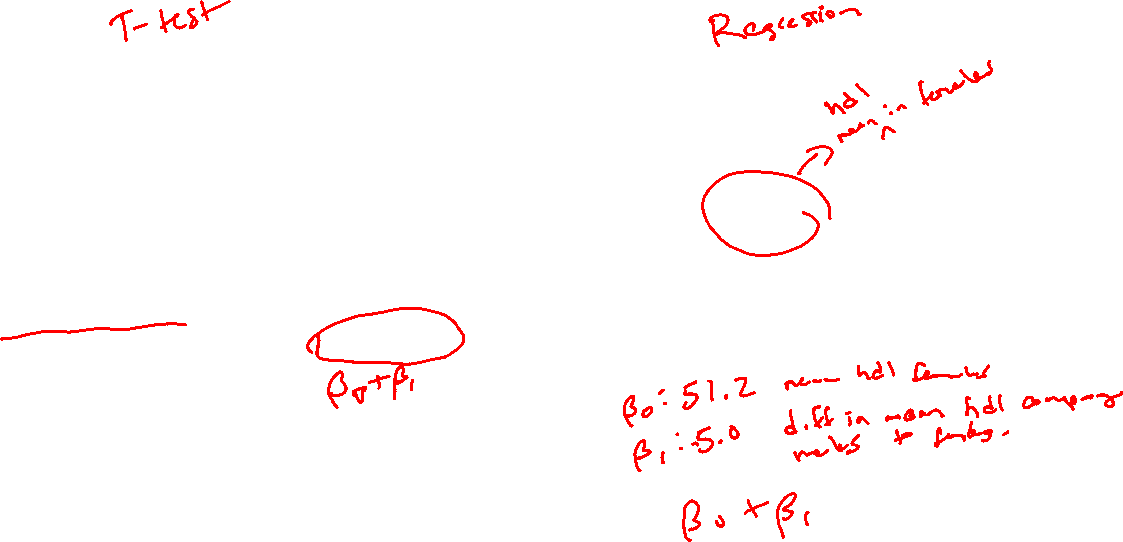 T-test
Regression
hdl
mean in females
β₀+β₁
β₀: 51.2 mean hdl females
β₁: -5.0 diff in mean hdl comparing
males to females.
β₀ + β₁